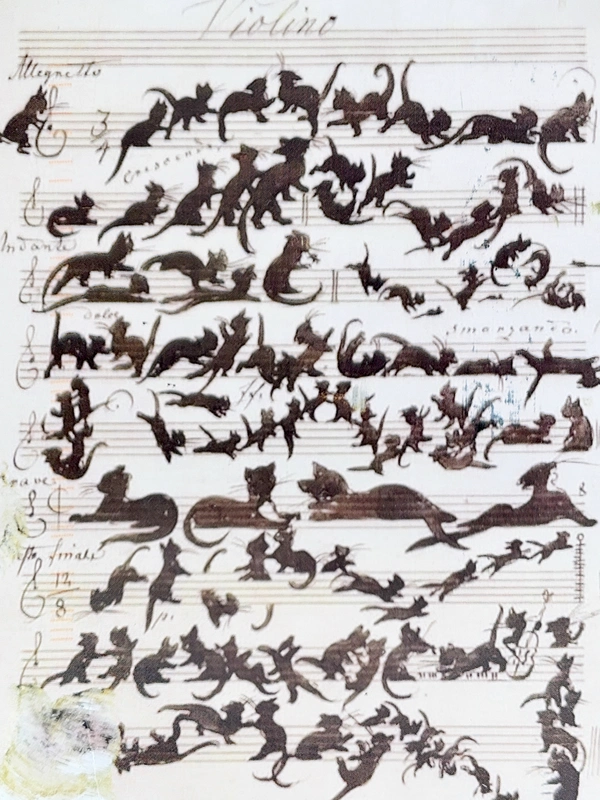 Violino
Allegretto
3
4
crescendo
Andante
dolce
smorzando.
ff.
soave
p. finale
12
8
p.